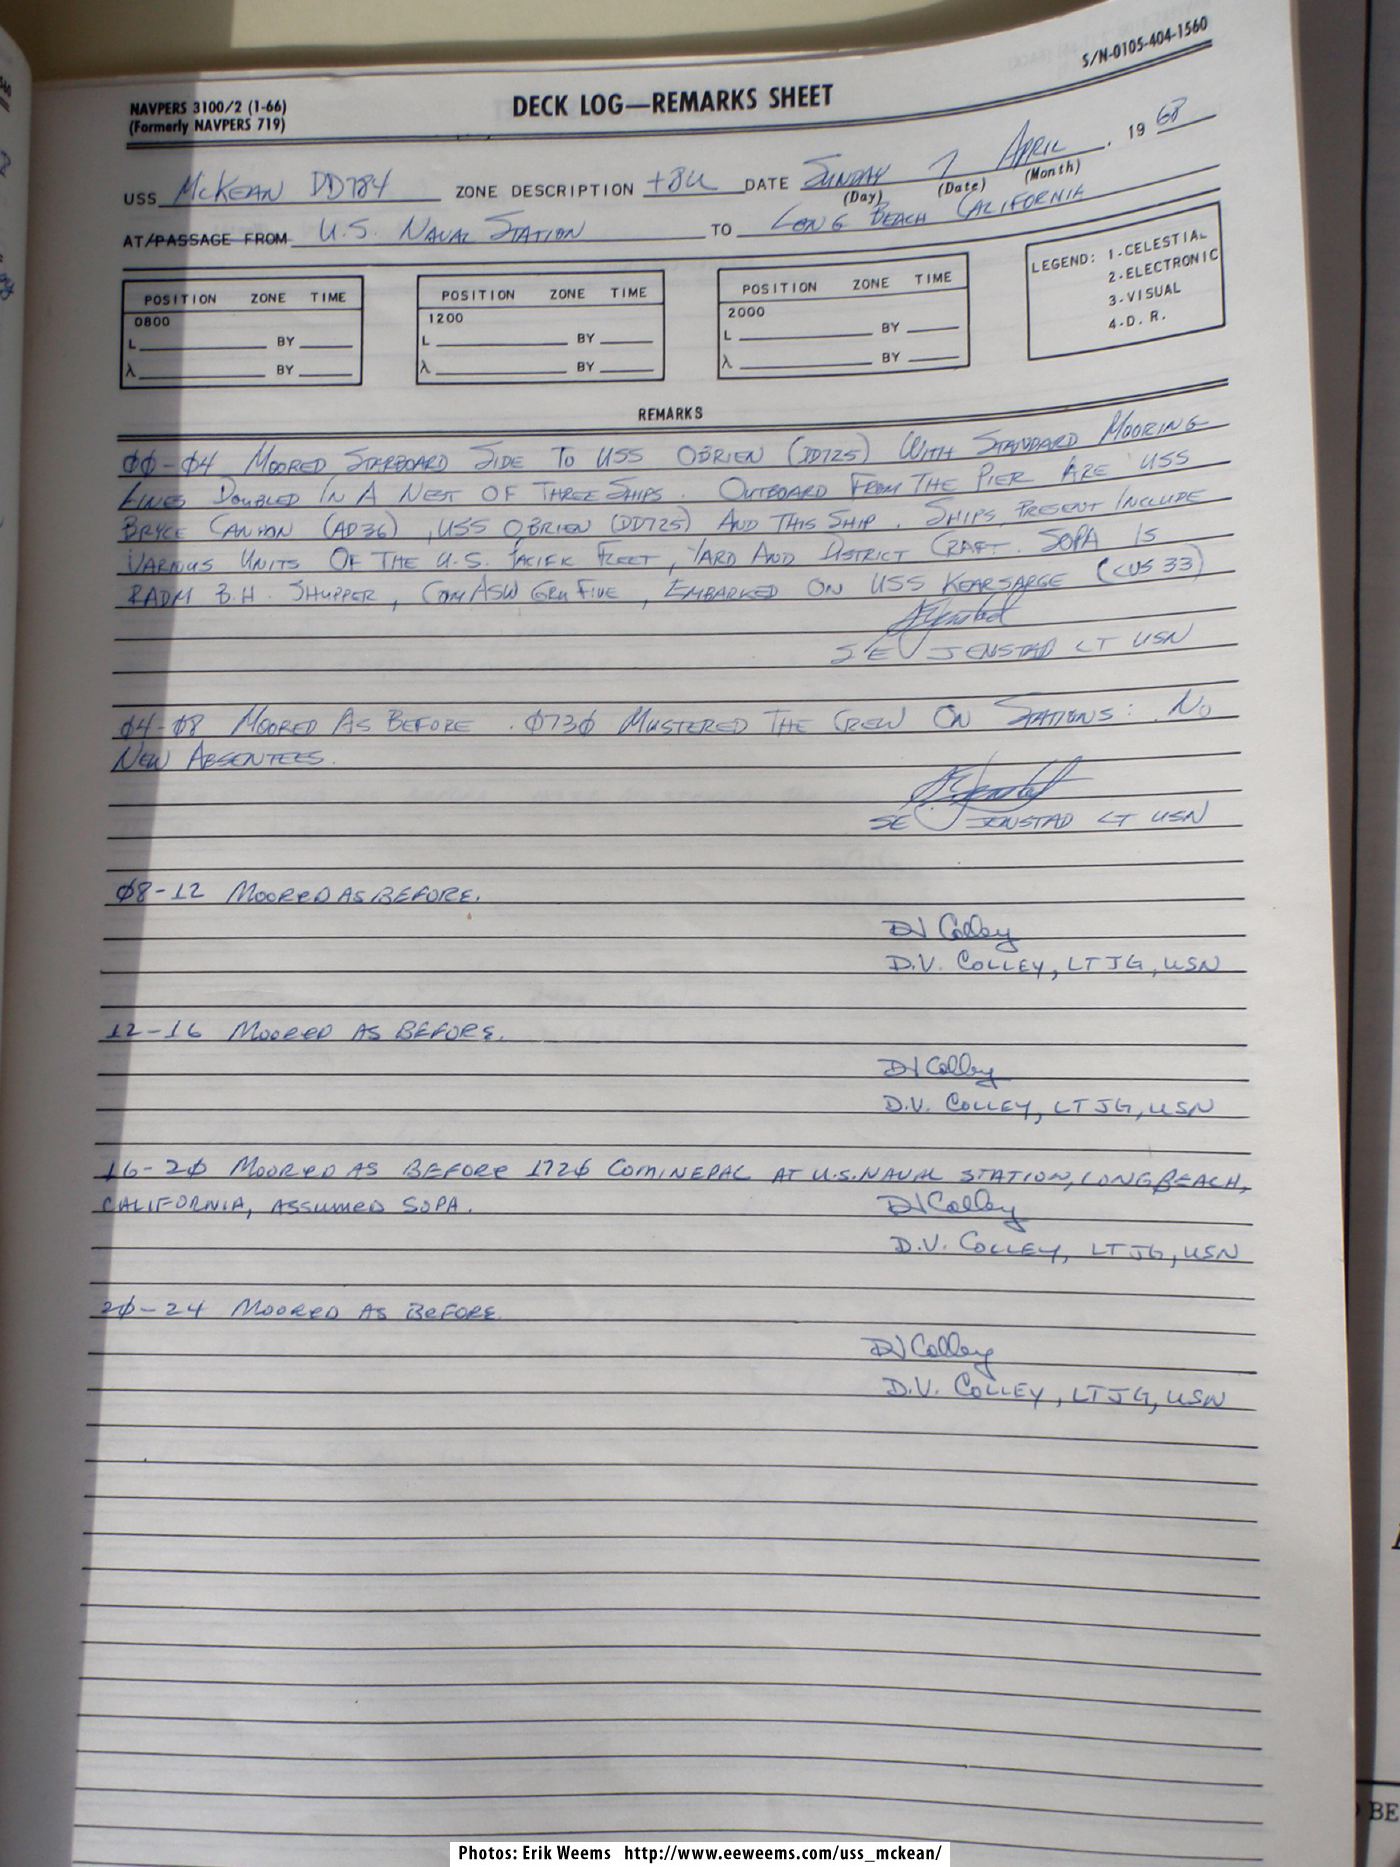 S/N-0105-404-1560
NAVPERS 3100/2 (1-66)
(Formerly NAVPERS 719)
DECK LOG—REMARKS SHEET
USS McKEAN DD784 ZONE DESCRIPTION +8U DATE SUNDAY 7 APRIL, 19 68
(Day) (Date) (Month)
AT/PASSAGE FROM U.S. NAVAL STATION TO LONG BEACH CALIFORNIA
POSITION ZONE TIME
0800
L BY
λ BY
POSITION ZONE TIME
1200
L BY
λ BY
POSITION ZONE TIME
2000
L BY
λ BY
LEGEND: 1-CELESTIAL
2-ELECTRONIC
3-VISUAL
4-D. R.
REMARKS
00-04 MOORED STARBOARD SIDE TO USS OBRIEN (DD725) WITH STANDARD MOORING
LINES DOUBLED IN A NEST OF THREE SHIPS. OUTBOARD FROM THE PIER ARE USS
BRYCE CANYON (AD36), USS OBRIEN (DD725) AND THIS SHIP. SHIPS PRESENT INCLUDE
VARIOUS UNITS OF THE U.S. PACIFIC FLEET, YARD AND DISTRICT CRAFT. SOPA IS
RADM B.H. SHUPPER, COMASWGRU FIVE, EMBARKED ON USS KEARSARGE (CVS 33)
SE JENSTAD LT USN
04-08 MOORED AS BEFORE. 0730 MUSTERED THE CREW ON STATIONS: NO
NEW ABSENTEES.
SE JENSTAD LT USN
08-12 MOORED AS BEFORE.
DV Colley
D.V. COLLEY, LTJG, USN
12-16 MOORED AS BEFORE.
DV Colley
D.V. COLLEY, LTJG, USN
16-20 MOORED AS BEFORE 1720 COMINEPAC AT U.S. NAVAL STATION, LONG BEACH,
CALIFORNIA, ASSUMED SOPA.
DV Colley
D.V. COLLEY, LTJG, USN
20-24 MOORED AS BEFORE
DV Colley
D.V. COLLEY, LTJG, USN
BE
Photos: Erik Weems http://www.eeweems.com/uss_mckean/